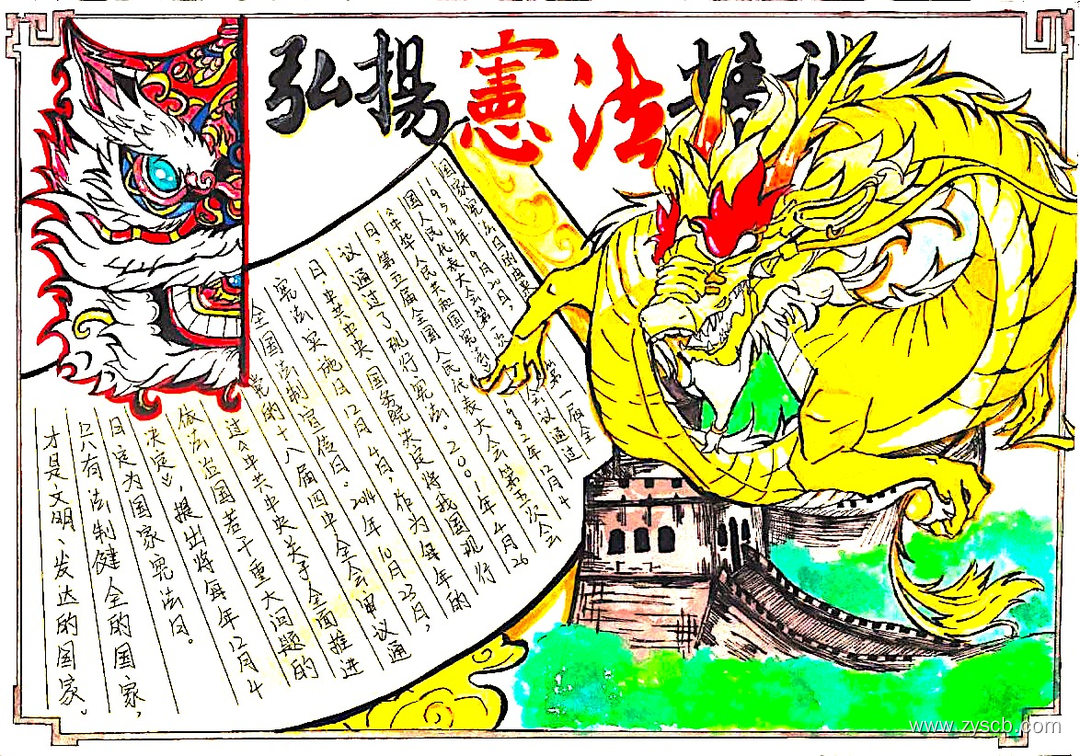 弘揚憲法
国家宪法日的由来
1954年9月20日，第一届全
国人民代表大会第一次会议通过
《中华人民共和国宪法》。1982年12月4
日，第五届全国人民代表大会第五次会
议通过了现行宪法。2001年4月26
日，中共中央、国务院决定将我国现行
宪法实施日12月4日，作为每年的
全国法制宣传日。2014年10月23日，
党的十八届四中全会审议通
过《中共中央关于全面推进
依法治国若干重大问题的
决定》，提出将每年12月4
日定为国家宪法日。
只有法制健全的国家，
才是文明、发达的国家。
www.zyscb.com